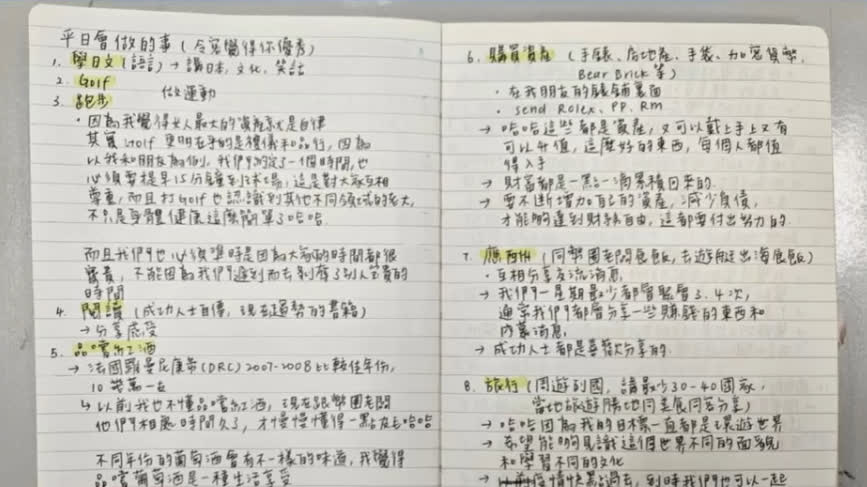 平日會做的事(令客覺得你優秀)
1. 學日文(語言)→ 講日本, 文化, 笑話
2. Golf
做運動
3. 跑步
・因為我覺得女人最大的資產就是自律
其實 Golf 更明在乎的是禮儀和品行, 因為
以我和朋友為例, 我們約定了一個時間, 也
必須要提早15分鐘到球場, 這是對大家互相
尊重, 而且打Golf也認識到其他不同領域的老大,
不只是身體健康這麼簡單了哈哈.
而且我們也必須準時是因為大家的時間都很
寶貴, 不能因為我們遲到而去剝奪了別人寶貴的
時間
4. 閱讀 (成功人士自傳, 現在趨勢的書籍)
→ 分享感受
5. 品嚐紅酒
→ 法國羅曼尼康帝(DRC) 2007-2008 比較佳年份,
10幾萬一支
↳ 以前我也不懂品嚐紅酒, 現在跟幣圈老闆
他們相處時間久了, 才慢慢懂得一點皮毛哈哈
不同年份的葡萄酒會有不一樣的味道, 我覺得
品嚐葡萄酒是一種生活享受
6. 購買資產 (手錶、房地產、手袋、加密貨幣,
Bear Brick等)
・在我朋友的錶舖裏面
・send Rolex、PP、RM
→ 哈哈這些都是資產, 又可以戴上手上又有
可以升值, 這麼好的東西, 每個人都值
得入手
→ 財富都是一點一滴累積回來的.
→ 要不斷增加自己的資產, 減少負債,
才能夠達到財務自由, 這都要付出努力的.
7. 應酬 (同幣圈老闆食飯, 去遊艇出海食飯)
・互相分享交流消息,
→ 我們一星期最少都會聚會3.4次,
通常我們都會分享一些賺錢的東西和
內幕消息,
→ 成功人士都是喜歡分享的.
8. 旅行 (周遊列國, 講最少30-40國家,
當地旅遊勝地同美食同客分享)
→ 哈哈因為我的目標一直都是環遊世界
→ 希望能夠見識這個世界不同的面貌
和學習不同的文化
→ 疫情快點過去, 到時我們也可以一起